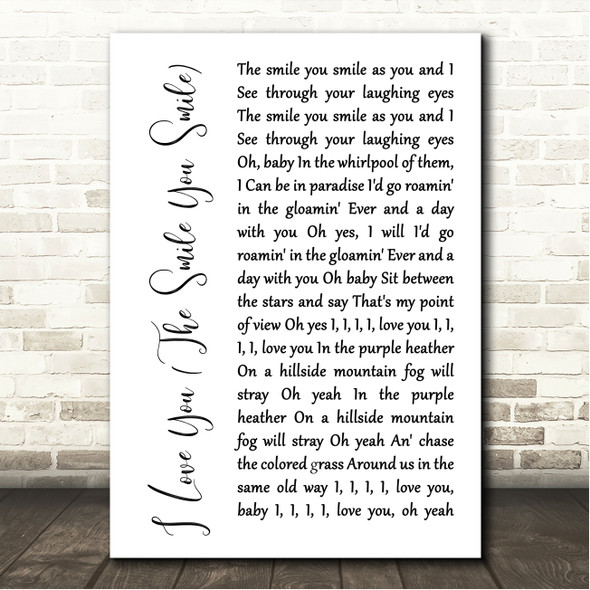 I Love You (The Smile You Smile)
The smile you smile as you and I
See through your laughing eyes
The smile you smile as you and I
See through your laughing eyes
Oh, baby In the whirlpool of them,
I Can be in paradise I'd go roamin'
in the gloamin' Ever and a day
with you Oh yes, I will I'd go
roamin' in the gloamin' Ever and a
day with you Oh baby Sit between
the stars and say That's my point
of view Oh yes I, I, I, I, love you I, I,
I, I, love you In the purple heather
On a hillside mountain fog will
stray Oh yeah In the purple
heather On a hillside mountain
fog will stray Oh yeah An' chase
the colored grass Around us in the
same old way I, I, I, I, love you,
baby I, I, I, I, love you, oh yeah